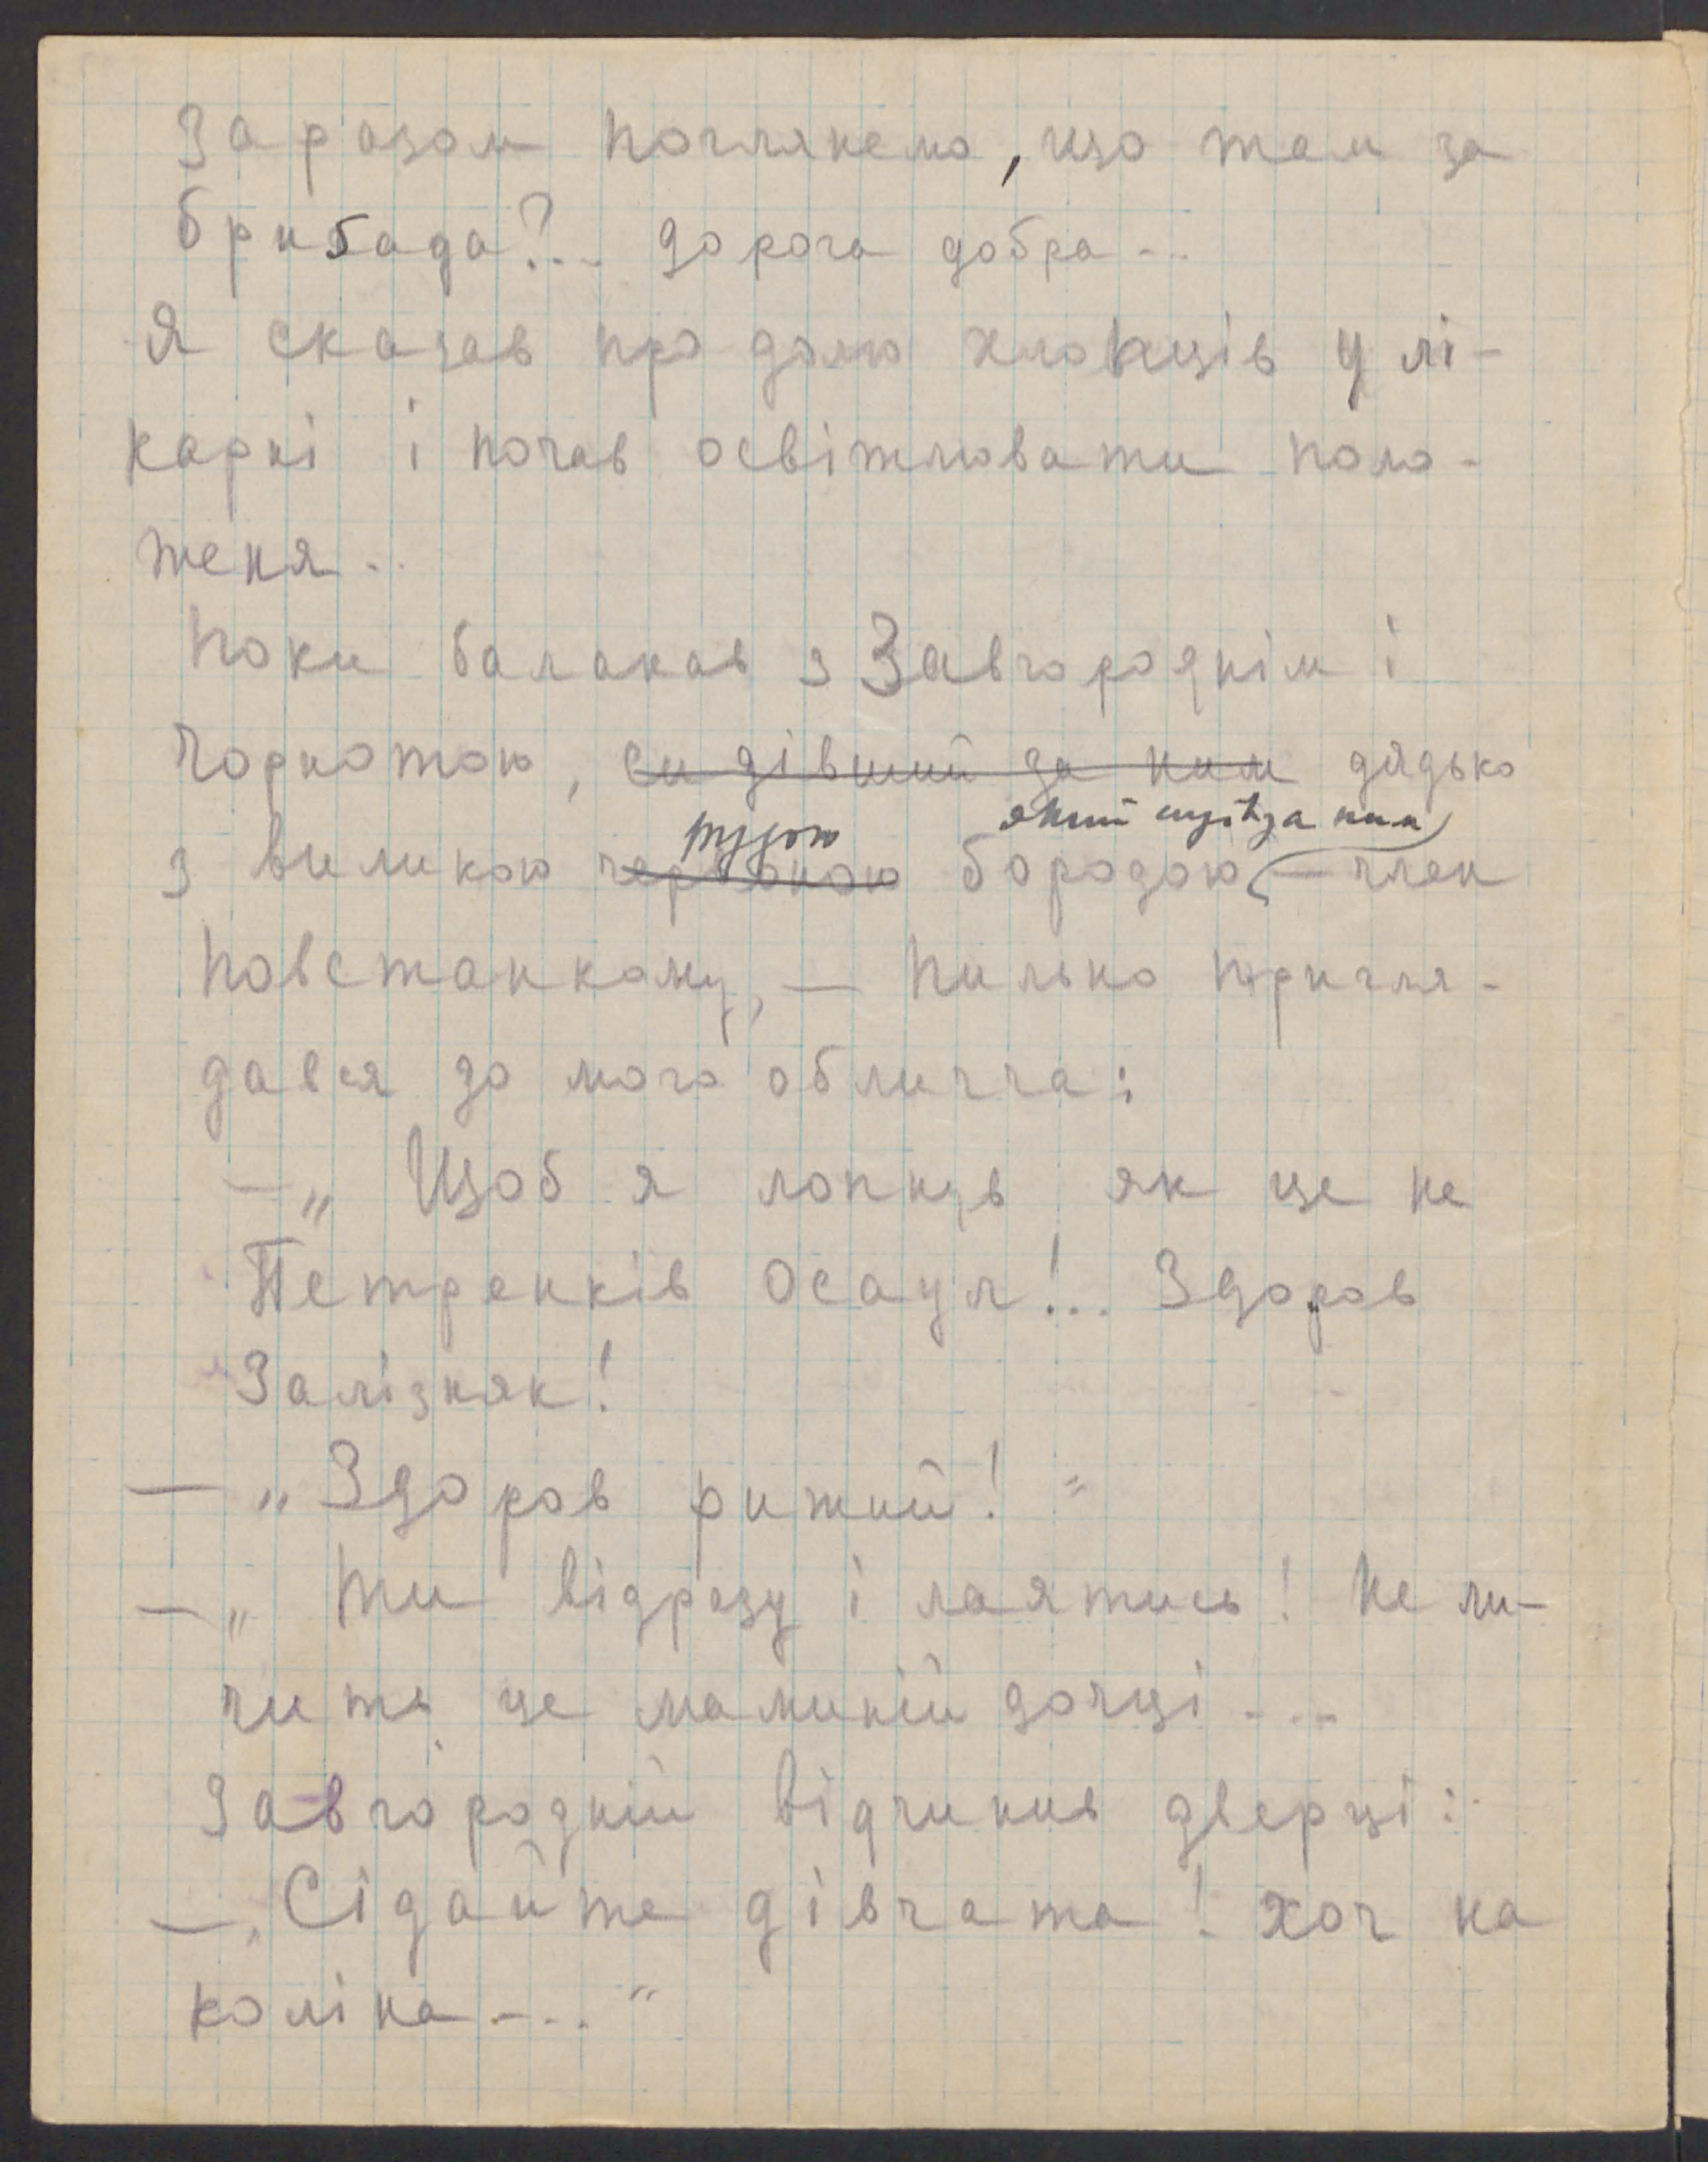 За разом поглянемо, що там за
бригада?... дорога добра...
Я сказав про долю хлопців у лі-
карні і почав освітлювати поло-
женя..
Поки балакав з Завгороднім і
Чорнотою, сидівший за ним дядько
рудою який сидів за ним
з виликою червоною бородою — член
повстанкому, — пильно пригля-
дався до мого обличча:
— „ Щоб я лопнув як це не
Петренків Осаул!... Здоров
Залізняк!
— „ Здоров рижий! "
— „ Ти відразу і лаятись! Не ли-
чить це маминій дочці...
Завгородній відчинив дверці:
— „ Сідайте дівчата! хоч на
коліна.... "